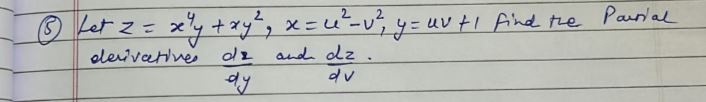 ⑤ Let z = x⁴y + xy², x = u² - v², y = uv + 1 find the Parsial
derivatives dz/dy and dz/dv.